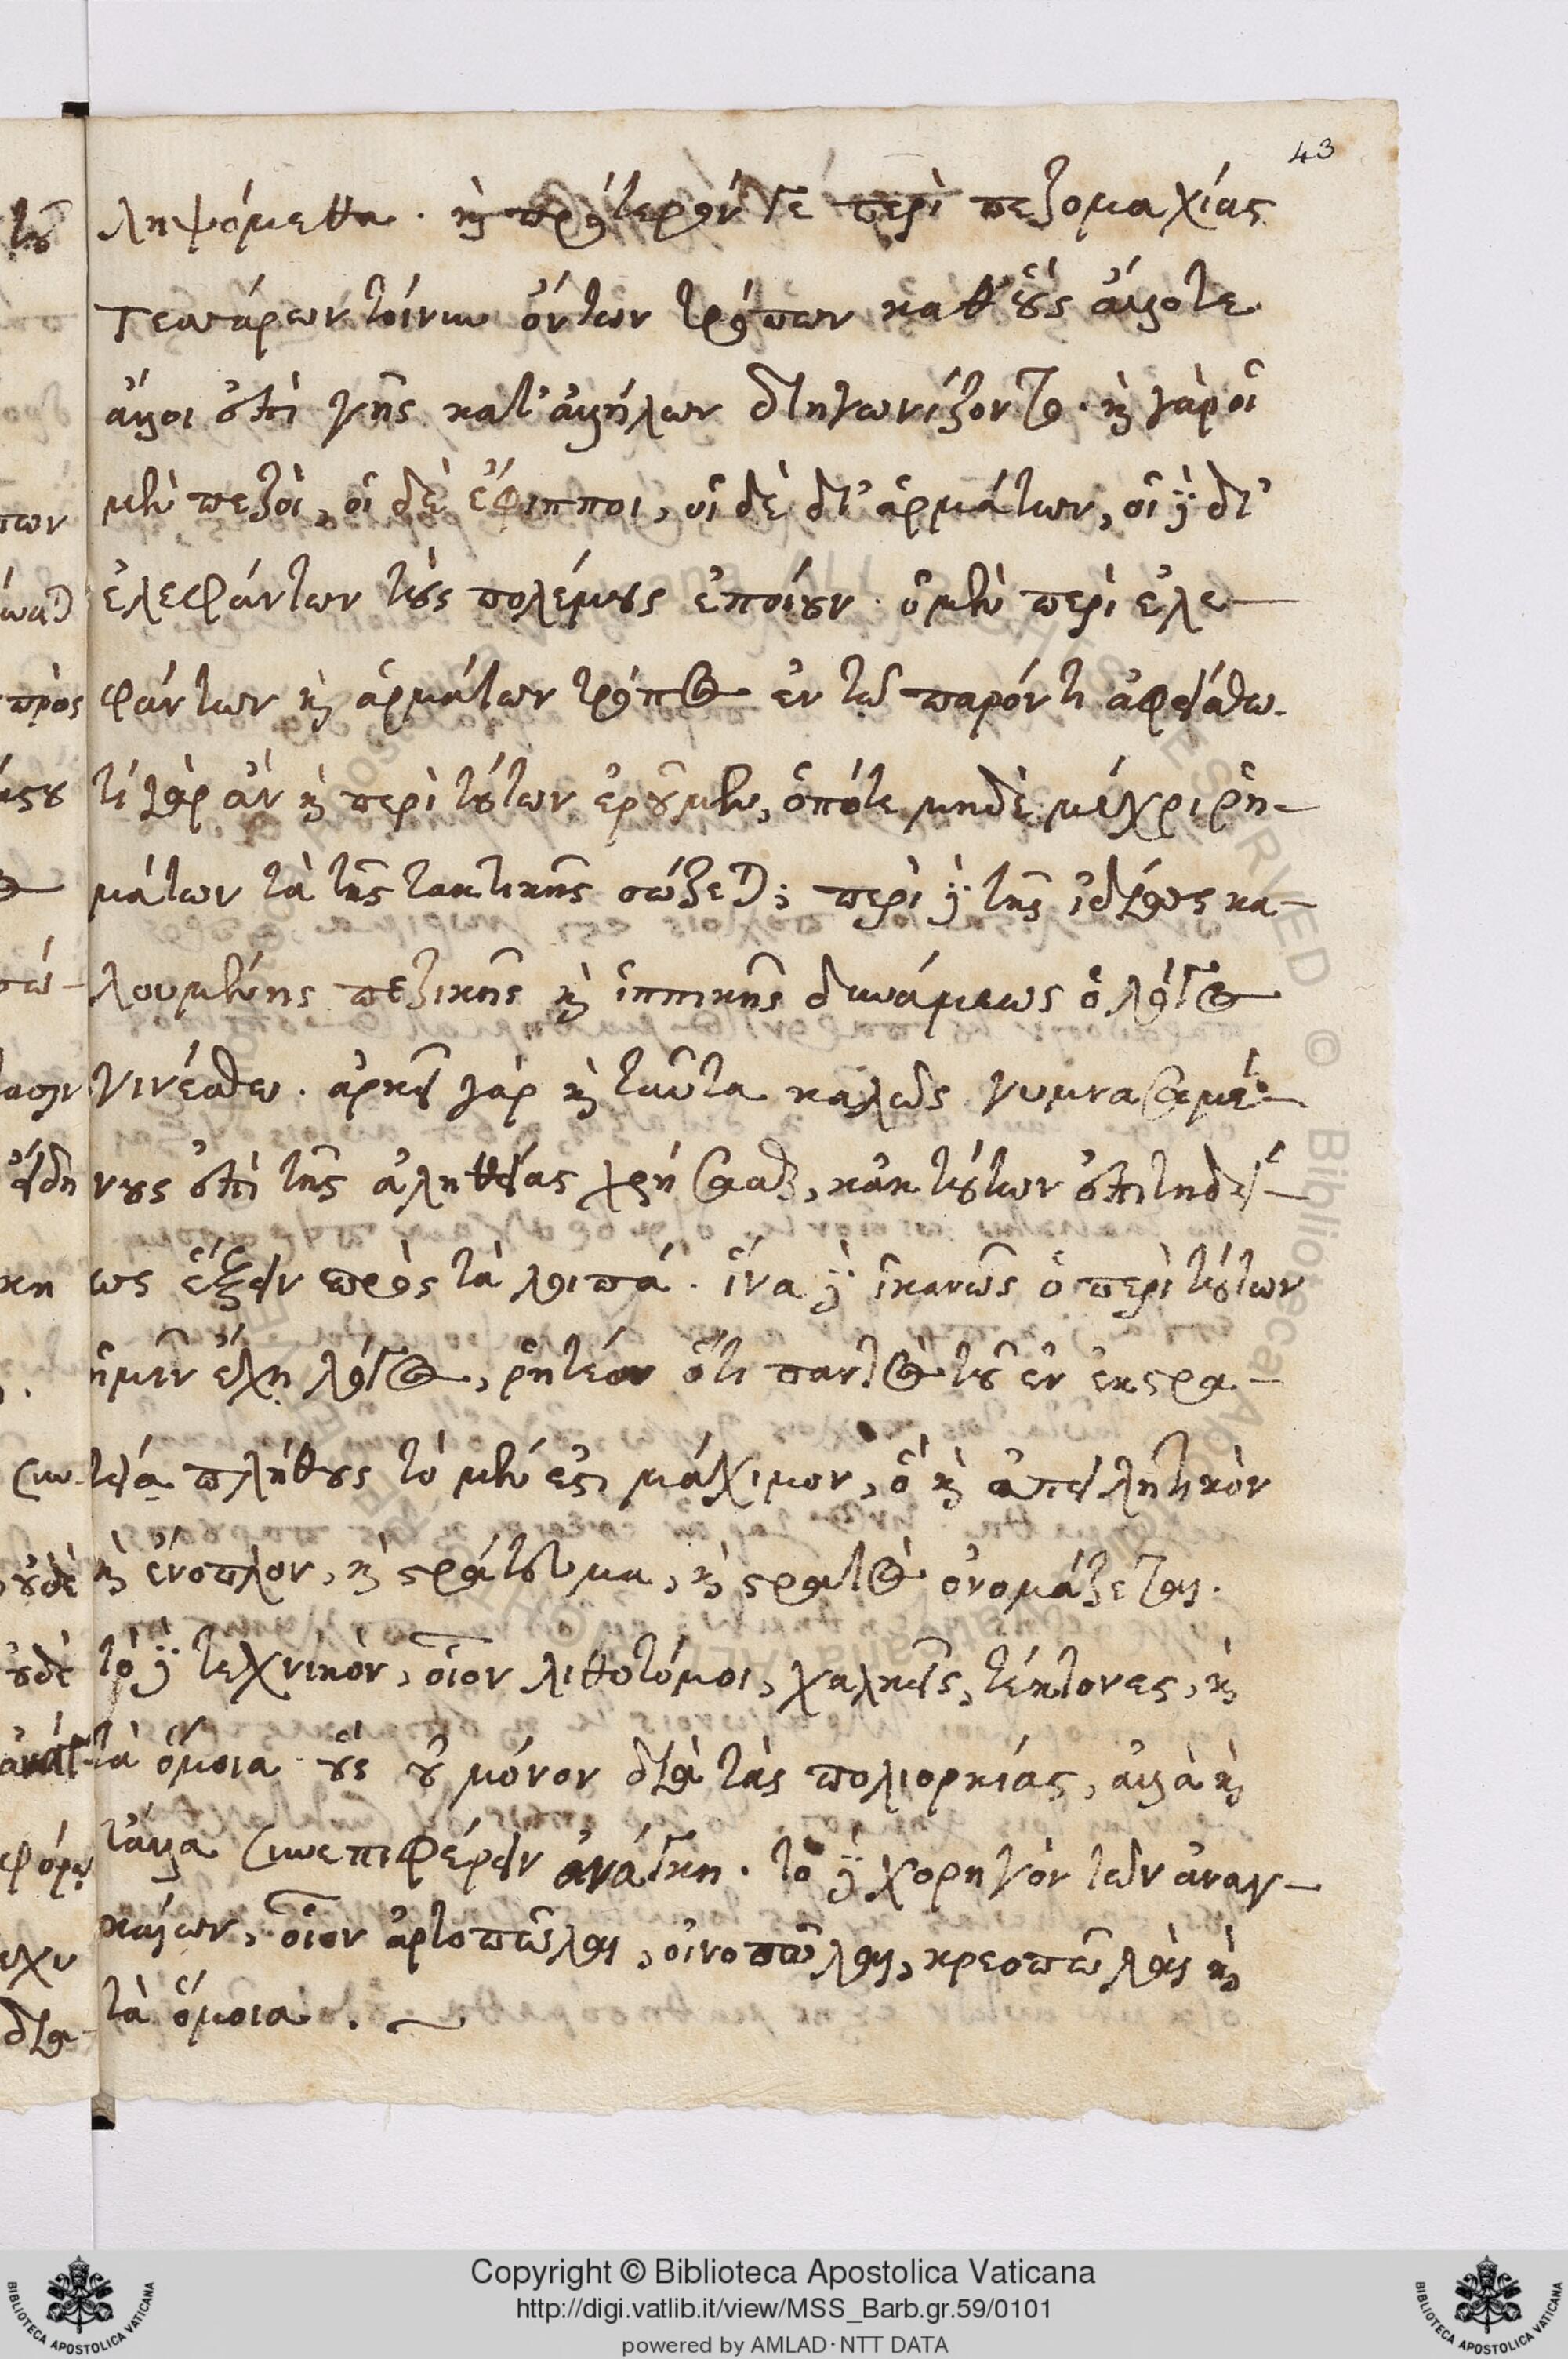 43
ληψόμεθα. καὶ πρότερόν γε περὶ πεζομαχίας
Τεσσάρων τοίνυν ὄντων τρόπων καθ' οὓς ἄλλοτε
ἄλλοι ἐπὶ γῆς κατ' ἀλλήλων διηγωνίζοντο. καὶ γὰρ οἱ
μὲν πεζοὶ, οἱ δὲ ἔφιπποι, οἱ δὲ δι' ἁρμάτων, οἱ δὲ δι'
ἐλεφάντων τοὺς πολέμους ἐποίουν. ὁ μὲν περὶ ἐλε-
φάντων καὶ ἁρμάτων τρόπος ἐν τῷ παρόντι ἀφείσθω.
τί γὰρ ἂν καὶ περὶ τούτων ἐροῦμεν, ὁπότε μηδὲ μέχρι ῥη-
μάτων τὰ τῆς τακτικῆς σώζεται; περὶ δὲ τῆς ἰδίως κα-
λουμένης πεζικῆς καὶ ἱππικῆς δυνάμεως ὁ λόγος
γινέσθω. ἀρκεῖ γὰρ καὶ ταῦτα καλῶς γυμνασαμέ-
νους ἐπὶ τῆς ἀληθείας χρήσασθαι, κἀκ τούτων ἐπιτηδεί-
ως ἕξειν πρὸς τὰ λοιπά. ἵνα δὲ ἱκανῶς ὁ περὶ τούτων
ἡμῖν ἔχῃ λόγος, ῥητέον ὅτι παντὸς τοῦ ἐν ἐκστρα-
τείᾳ πλήθους τὸ μέν ἐστι μάχιμον, ὃ καὶ ἀπειλητικὸν
καὶ ἔνοπλον, καὶ στράτευμα, καὶ στρατὸς ὀνομάζεται.
τὸ δὲ τεχνικὸν, οἷον λιθοτόμοι, χαλκεῖς, τέκτονες, καὶ
τὰ ὅμοια οὓς οὐ μόνον διὰ τὰς πολιορκίας, ἀλλὰ καὶ
τἄλλα συνεπιφέρειν ἀνάγκη. τὸ δὲ χορηγὸν τῶν ἀναγ-
καίων, οἷον ἀρτοπῶλαι, οἰνοπῶλαι, κρεοπῶλαι καὶ
τὰ ὅμοια.
BIBLIOTECA APOSTOLICA VATICANA
Copyright © Biblioteca Apostolica Vaticana
http://digi.vatlib.it/view/MSS_Barb.gr.59/0101
powered by AMLAD·NTT DATA
BIBLIOTECA APOSTOLICA VATICANA